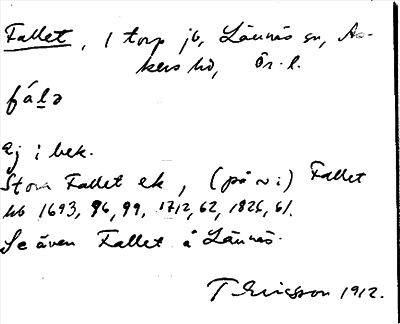 Fallet, 1 torp jb, Lännäs sn, As-
kers hd, Ör. l.
fálə
Ej i bek.
Stora Fallet ek, (på ~ :) Fallet
hb 1693, 96, 99, 1712, 62, 1825, 61.
Se även Fallet å Lännäs.
T Ericsson 1912.